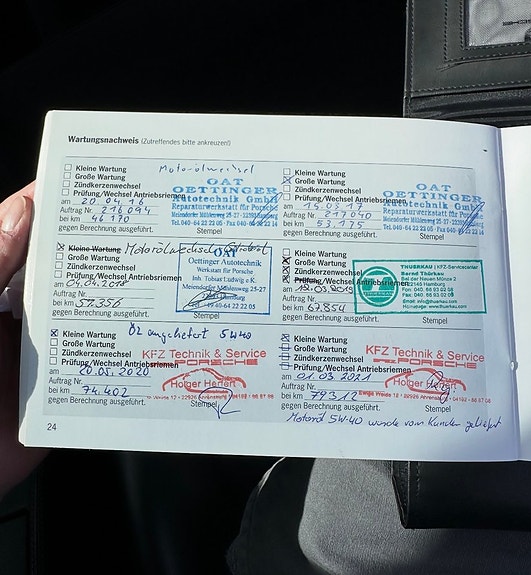 Wartungsnachweis (Zutreffendes bitte ankreuzen!)
Kleine Wartung
Motorölwechsel
Große Wartung
Zündkerzenwechsel
Prüfung/Wechsel Antriebsriemen
am 20.04.16
Auftrag Nr. 216094
bei km 46170
gegen Berechnung ausgeführt.
Stempel
OAT
OETTINGER
Autotechnik GmbH
Reparaturwerkstatt für Porsche
Meiendorfer Mühlenweg 25-27
Kleine Wartung
Große Wartung
Zündkerzenwechsel
Prüfung/Wechsel Antriebsriemen
am 15.03.17
Auftrag Nr. 217040
bei km 53.175
gegen Berechnung ausgeführt.
Stempel
OAT
OETTINGER
Autotechnik GmbH
Reparaturwerkstatt für Porsche
Meiendorfer Mühlenweg 25-27
Kleine Wartung
Motorölwechsel
Große Wartung
Zündkerzenwechsel
Prüfung/Wechsel Antriebsriemen
am 04.04.2018
Auftrag Nr.
bei km 57.356
gegen Berechnung ausgeführt.
Stempel
OAT
Oettinger Autotechnik
Werkstatt für Porsche
Inh Tobias Ludwig e.K.
Meiendorfer Mühlenweg 25-27
Kleine Wartung
Große Wartung
Zündkerzenwechsel
Prüfung/Wechsel Antriebsriemen
Auftrag Nr.
bei km 67.854
gegen Berechnung ausgeführt.
Stempel
THUERKAU KFZ-Servicecenter
Bernd Thürkau
Bei der Neuen Münze 2
22145 Hamburg
Kleine Wartung
Öl angeliefert 5W40
Große Wartung
Zündkerzenwechsel
Prüfung/Wechsel Antriebsriemen
am 20.05.2020
Auftrag Nr.
bei km 74.402
gegen Berechnung ausgeführt.
Stempel
KFZ Technik & Service
PORSCHE
Holger Herfert
Kleine Wartung
Große Wartung
Zündkerzenwechsel
Prüfung/Wechsel Antriebsriemen
am 01.03.2021
Auftrag Nr.
bei km 79312
gegen Berechnung ausgeführt.
Stempel
KFZ Technik & Service
PORSCHE
Holger
Motoröl 5W-40 wurde vom Kunden geliefert
24